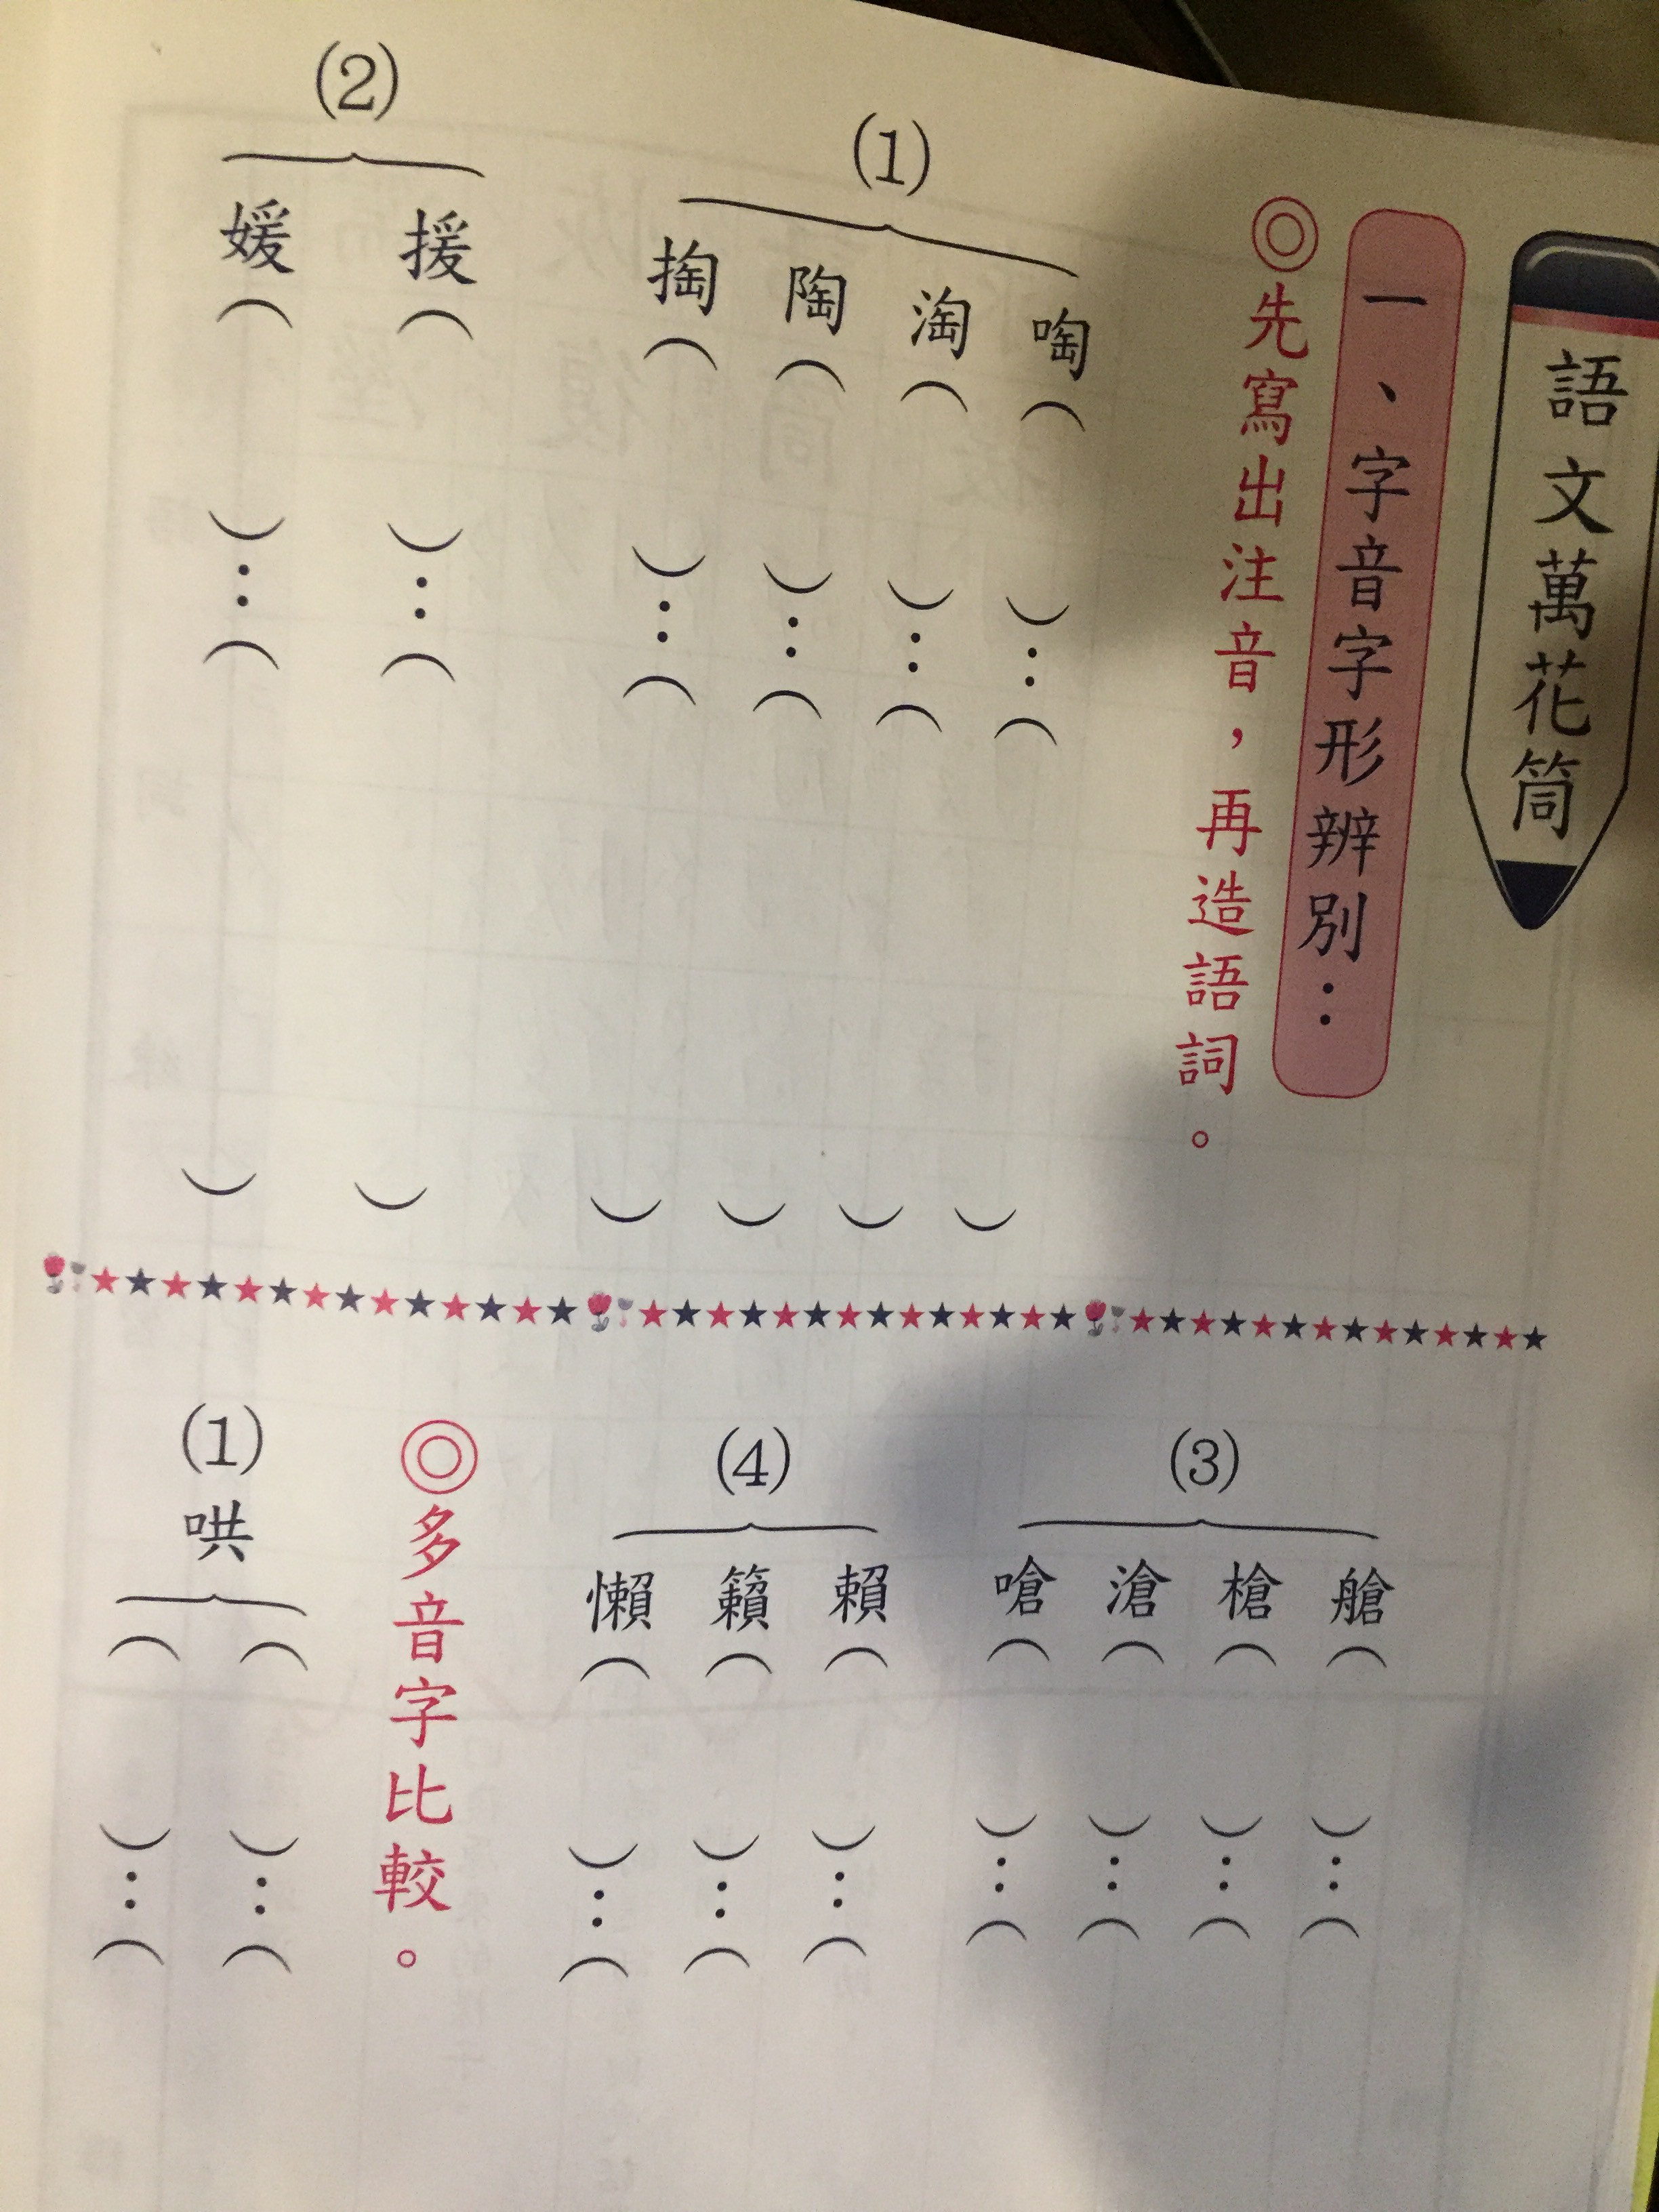 語文萬花筒
一、字音字形辨別：
◎先寫出注音，再造語詞。
(1)
啕（　　）：（　　）
淘（　　）：（　　）
陶（　　）：（　　）
掏（　　）：（　　）
(2)
援（　　）：（　　）
媛（　　）：（　　）
(3)
艙（　　）：（
槍（　　）：（
滄（　　）：（
嗆（　　）：（
(4)
賴（　　）：（
籟（　　）：（
懶（　　）：（
◎多音字比較。
(1)哄
（　　）：（
（　　）：（